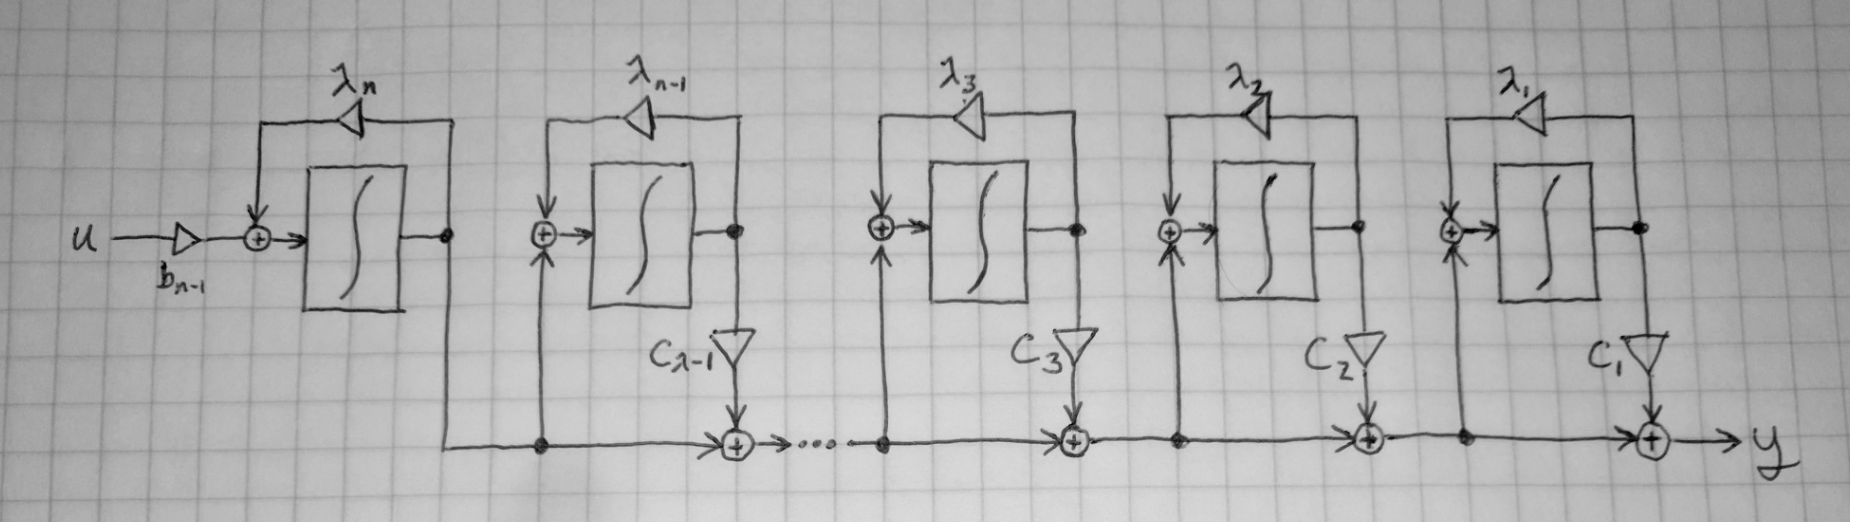 λn λn-1 λ3 λ2 λ1
u bn-1 ∫ ∫ ∫ ∫ ∫
Cλ-1 C3 C2 C1
+ + + + +
+ + ... + + + y